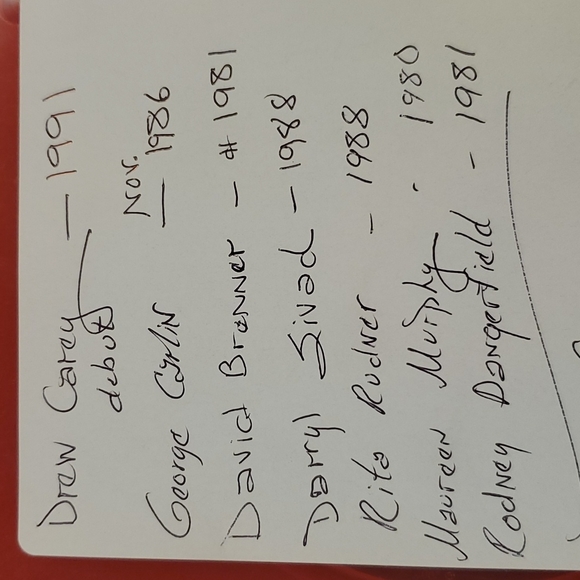 Drew Carey — 1991
debut
Nov.
George Carlin — 1986
David Brenner — # 1981
Darryl Sivad — 1988
Rita Rudner - 1988
Maureen Murphy - 1980
Rodney Dangerfield - 1981